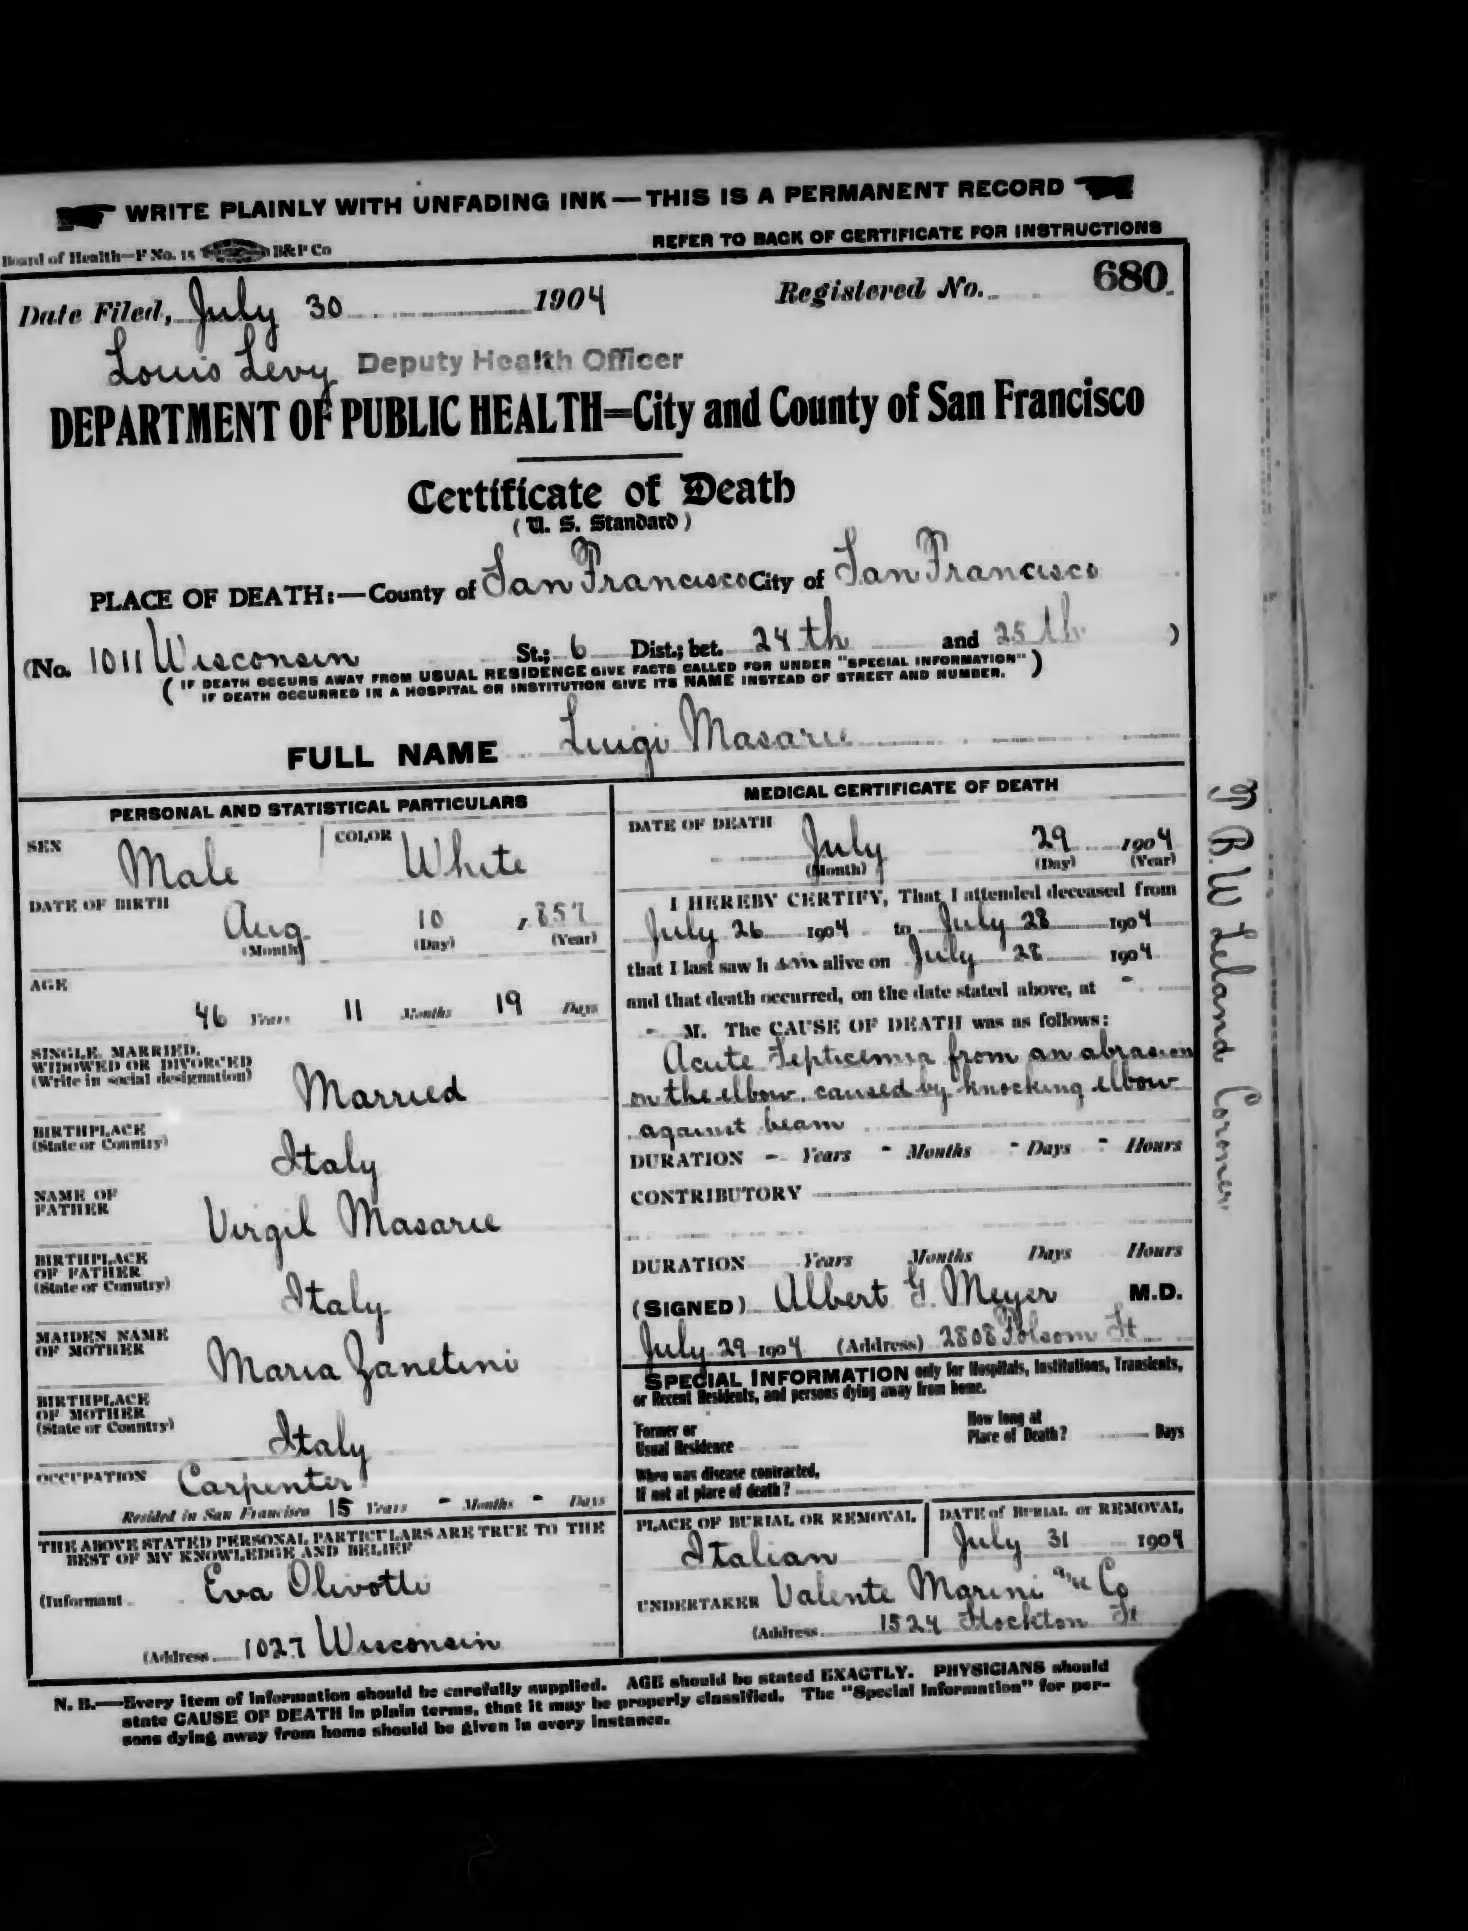 WRITE PLAINLY WITH UNFADING INK—THIS IS A PERMANENT RECORD
Board of Health—F No. 15 B&P Co
REFER TO BACK OF CERTIFICATE FOR INSTRUCTIONS
Date Filed, July 30 1904
Registered No. 680
Louis Levy Deputy Health Officer
DEPARTMENT OF PUBLIC HEALTH=City and County of San Francisco
Certificate of Death
(U. S. Standard)
PLACE OF DEATH:—County of San Francisco City of San Francisco
(No. 1011 Wisconsin St.; 6 Dist.; bet. 24th and 25th )
( IF DEATH OCCURS AWAY FROM USUAL RESIDENCE GIVE FACTS CALLED FOR UNDER "SPECIAL INFORMATION" )
IF DEATH OCCURRED IN A HOSPITAL OR INSTITUTION GIVE ITS NAME INSTEAD OF STREET AND NUMBER.
FULL NAME Luigi Masarie
PERSONAL AND STATISTICAL PARTICULARS
SEX Male COLOR White
DATE OF BIRTH
Aug 10 , 857
(Month) (Day) (Year)
AGE
46 Years 11 Months 19 Days
SINGLE, MARRIED,
WIDOWED OR DIVORCED
(Write in social designation)
Married
BIRTHPLACE
(State or Country)
Italy
NAME OF
FATHER
Virgil Masarie
BIRTHPLACE
OF FATHER
(State or Country)
Italy
MAIDEN NAME
OF MOTHER
Maria Zanetini
BIRTHPLACE
OF MOTHER
(State or Country)
Italy
OCCUPATION Carpenter
Resided in San Francisco 15 Years - Months - Days
THE ABOVE STATED PERSONAL PARTICULARS ARE TRUE TO THE
BEST OF MY KNOWLEDGE AND BELIEF
(Informant Eva Olivotti
(Address 1027 Wisconsin
MEDICAL CERTIFICATE OF DEATH
DATE OF DEATH
July 29 1904
(Month) (Day) (Year)
I HEREBY CERTIFY, That I attended deceased from
July 26 1904 to July 28 1904
that I last saw h im alive on July 28 1904
and that death occurred, on the date stated above, at -
- M. The CAUSE OF DEATH was as follows:
Acute Septicemia from an abrasion
on the elbow, caused by knocking elbow
against beam
DURATION - Years - Months - Days - Hours
CONTRIBUTORY
DURATION Years Months Days Hours
(SIGNED) Albert G. Meyer M.D.
July 29 1904 (Address) 2808 Folsom St
SPECIAL INFORMATION only for Hospitals, Institutions, Transients,
or Recent Residents, and persons dying away from home.
Former or
Usual Residence
How long at
Place of Death? Days
When was disease contracted,
If not at place of death?
PLACE OF BURIAL OR REMOVAL
Italian
DATE of BURIAL or REMOVAL
July 31 1904
UNDERTAKER Valente Marini & Co
(Address 1524 Stockton St
N. B.—Every item of information should be carefully supplied. AGE should be stated EXACTLY. PHYSICIANS should
state CAUSE OF DEATH in plain terms, that it may be properly classified. The "Special Information" for per-
sons dying away from home should be given in every instance.
B. W Leland Coroner